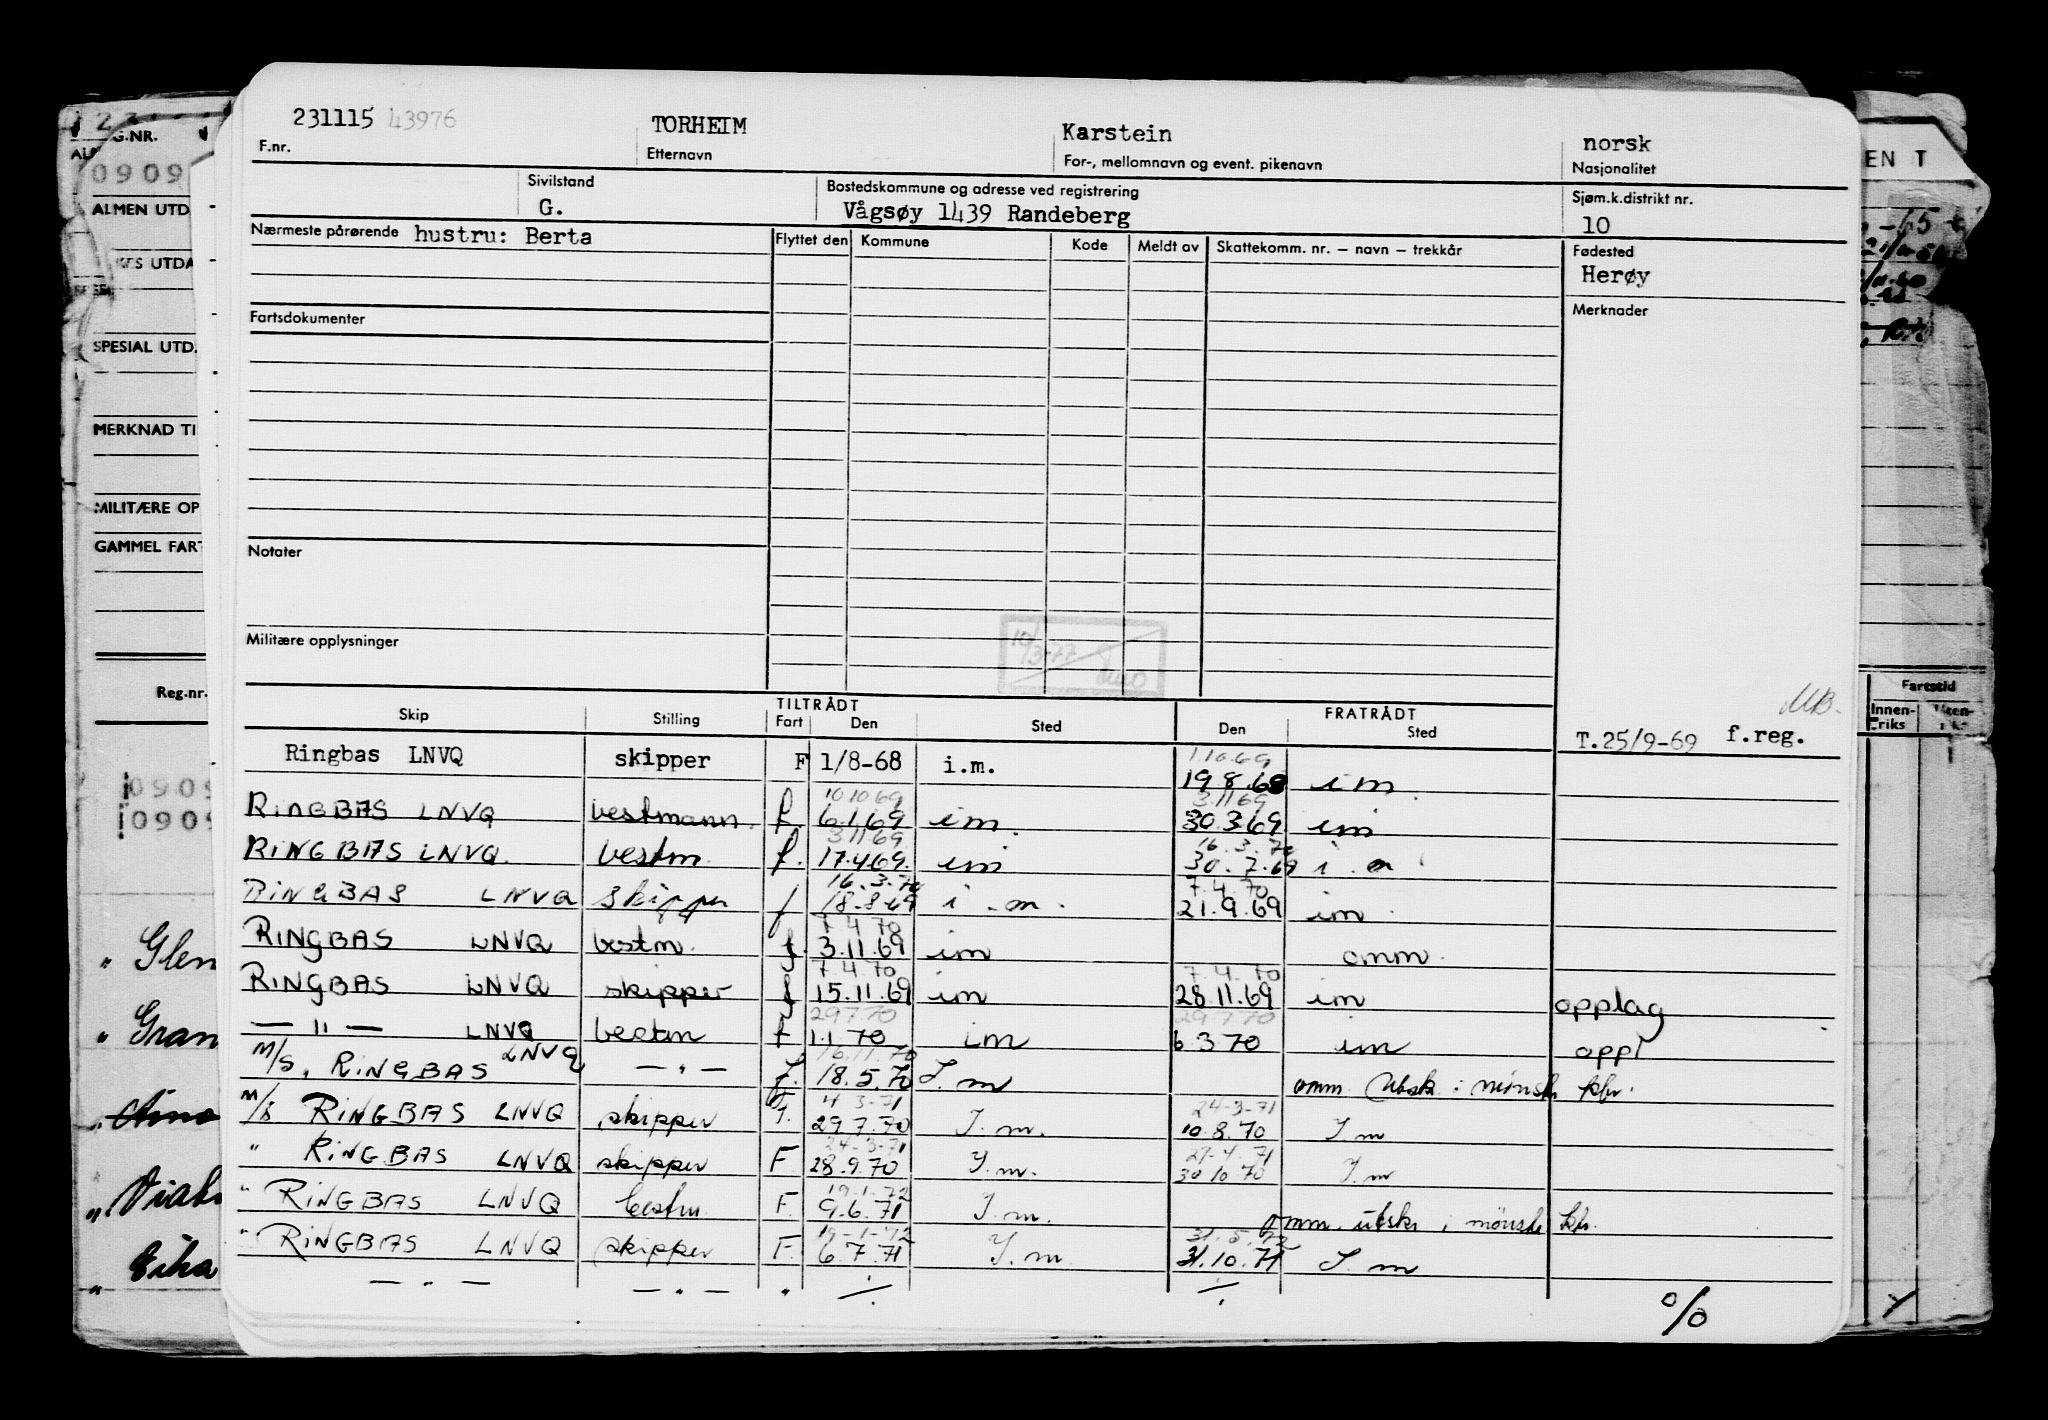 231115 43976 TORHEIM Karstein norsk
F.nr. Etternavn For-, mellomnavn og event. pikenavn Nasjonalitet
Sivilstand Bostedskommune og adresse ved registrering Sjøm.k.distrikt nr.
G. Vågsøy 1439 Randeberg 10
Nærmeste pårørende hustru: Berta Flyttet den Kommune Kode Meldt av Skattekomm. nr. – navn – trekkår Fødested
Herøy
Fartsdokumenter Merknader
Notater
Militære opplysninger
10/3-77
MB.
TILTRÅDT FRATRÅDT
Skip Stilling Fart Den Sted Den Sted
T.25/9-69 f.reg.
1.10.69
Ringbas LNVQ skipper F 1/8-68 i.m. 19.8.68 im.
10.10.69 3.11.69
RINGBAS LNVQ bestmann. f. 6.1.69 im. 30.3.69 im
3.11.69 16.3.70
RINGBAS LNVQ. bestm. f. 17.4.69. im 30.7.69 i.m
16.3.70 7.4.70
RINGBAS LNVQ skipper f 18-8-69 i.m. 21.9.69 im.
7.4.70
RINGBAS LNVQ bestm. f. 3.11.69 im omm.
7.4.70 7.4.70
RINGBAS LNVQ skipper f 15.11.69 im 28.11.69 im opplag
29.7.70 29.7.70
— " — LNVQ bestm F 1.1.70 im 6.3.70 im oppl
16.11.70
M/S. RINGBAS LNVQ — " — F. 18.5.70 I.m omm. utsk. i mönstr kpr.
4-3-71 24-3-71
M/S RINGBAS LNVQ skipper F. 29.7.70 I.m. 10.8.70 I.m
24-3-71 27.4.71
" RINGBAS LNVQ skipper F 28.9.70 I.m. 30.10.70 I.m
19.1.72
" RINGBAS LNVQ bestm. F. 9.6.71 I.m. omm. utskr. i mönstr kpr.
19-1-72 31.5.72
" RINGBAS LNVQ skipper F. 6.7.71 I.m 31.10.71 I.m
— " — — " — " ./. ./.
o/o
G.NR.
0909
ALMEN UTD.
SPESIAL UTD.
MERKNAD TI
MILITÆRE OP
GAMMEL FART
Reg.nr.
0909
0909
" Glen
" Gran
ENT
Fartstid
Innen-
riks